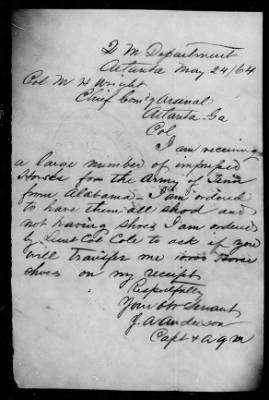 Q M Department
Atlanta May 24/64
Col M H Wright
Chief Com'd'g Arsenal
Atlanta Ga
Col
I am receiving
a large number of impressed
Horses for the Army of Tenn
from Alabama. I am ordered
to have them all shod and
not having shoes I am ordered
by Lieut Col Cole to ask if you
will transfer me 10000 Horse
shoes on my receipt
Respectfully
Your Obt Servant
J. A. Anderson
Capt & A Q M